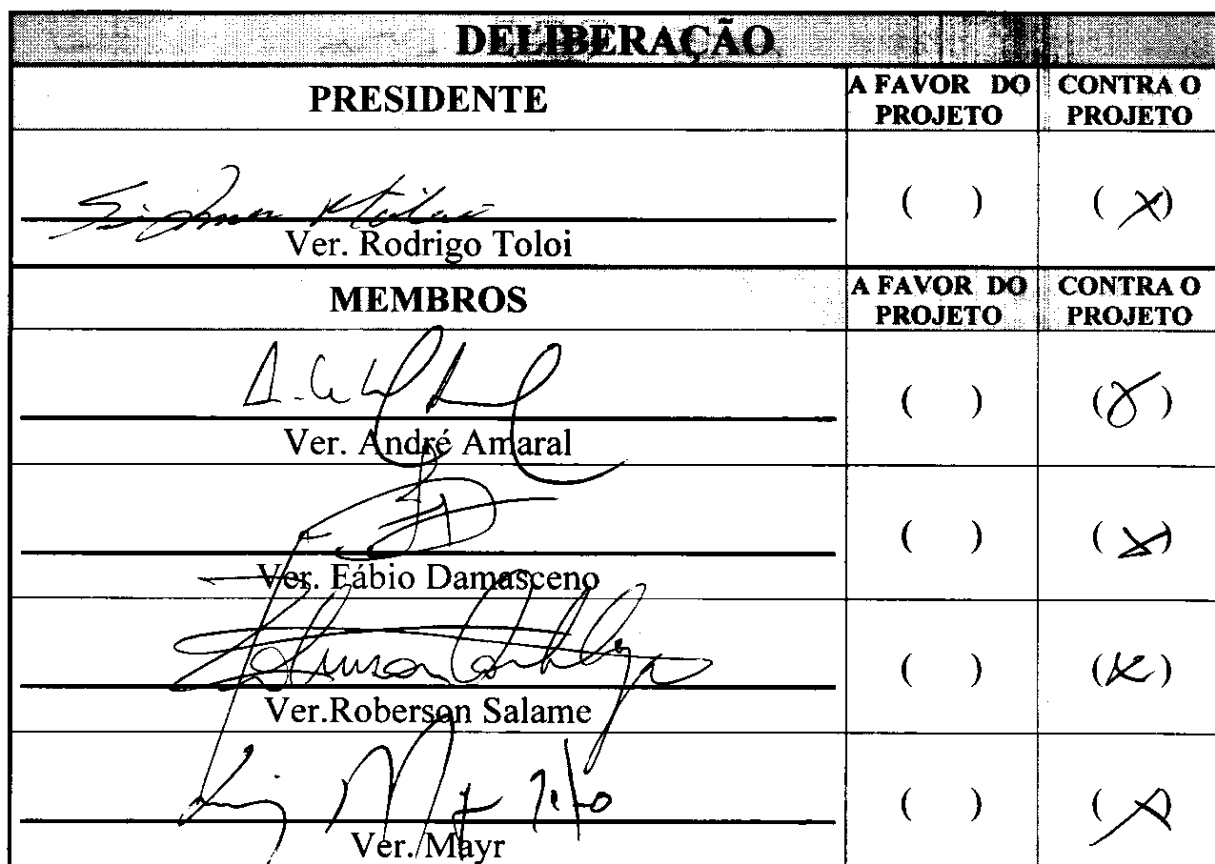 DELIBERAÇÃO
PRESIDENTE
A FAVOR DO
PROJETO
CONTRA O
PROJETO
( )
( X )
Ver. Rodrigo Toloi
MEMBROS
A FAVOR DO
PROJETO
CONTRA O
PROJETO
( )
( X )
Ver. André Amaral
( )
( X )
Ver. Fábio Damasceno
( )
( X )
Ver.Roberson Salame
( )
( X )
Ver. Mayr